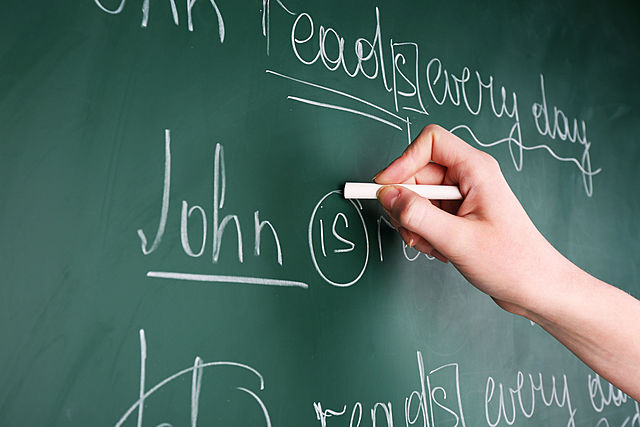 reads every day
John is
reads every day